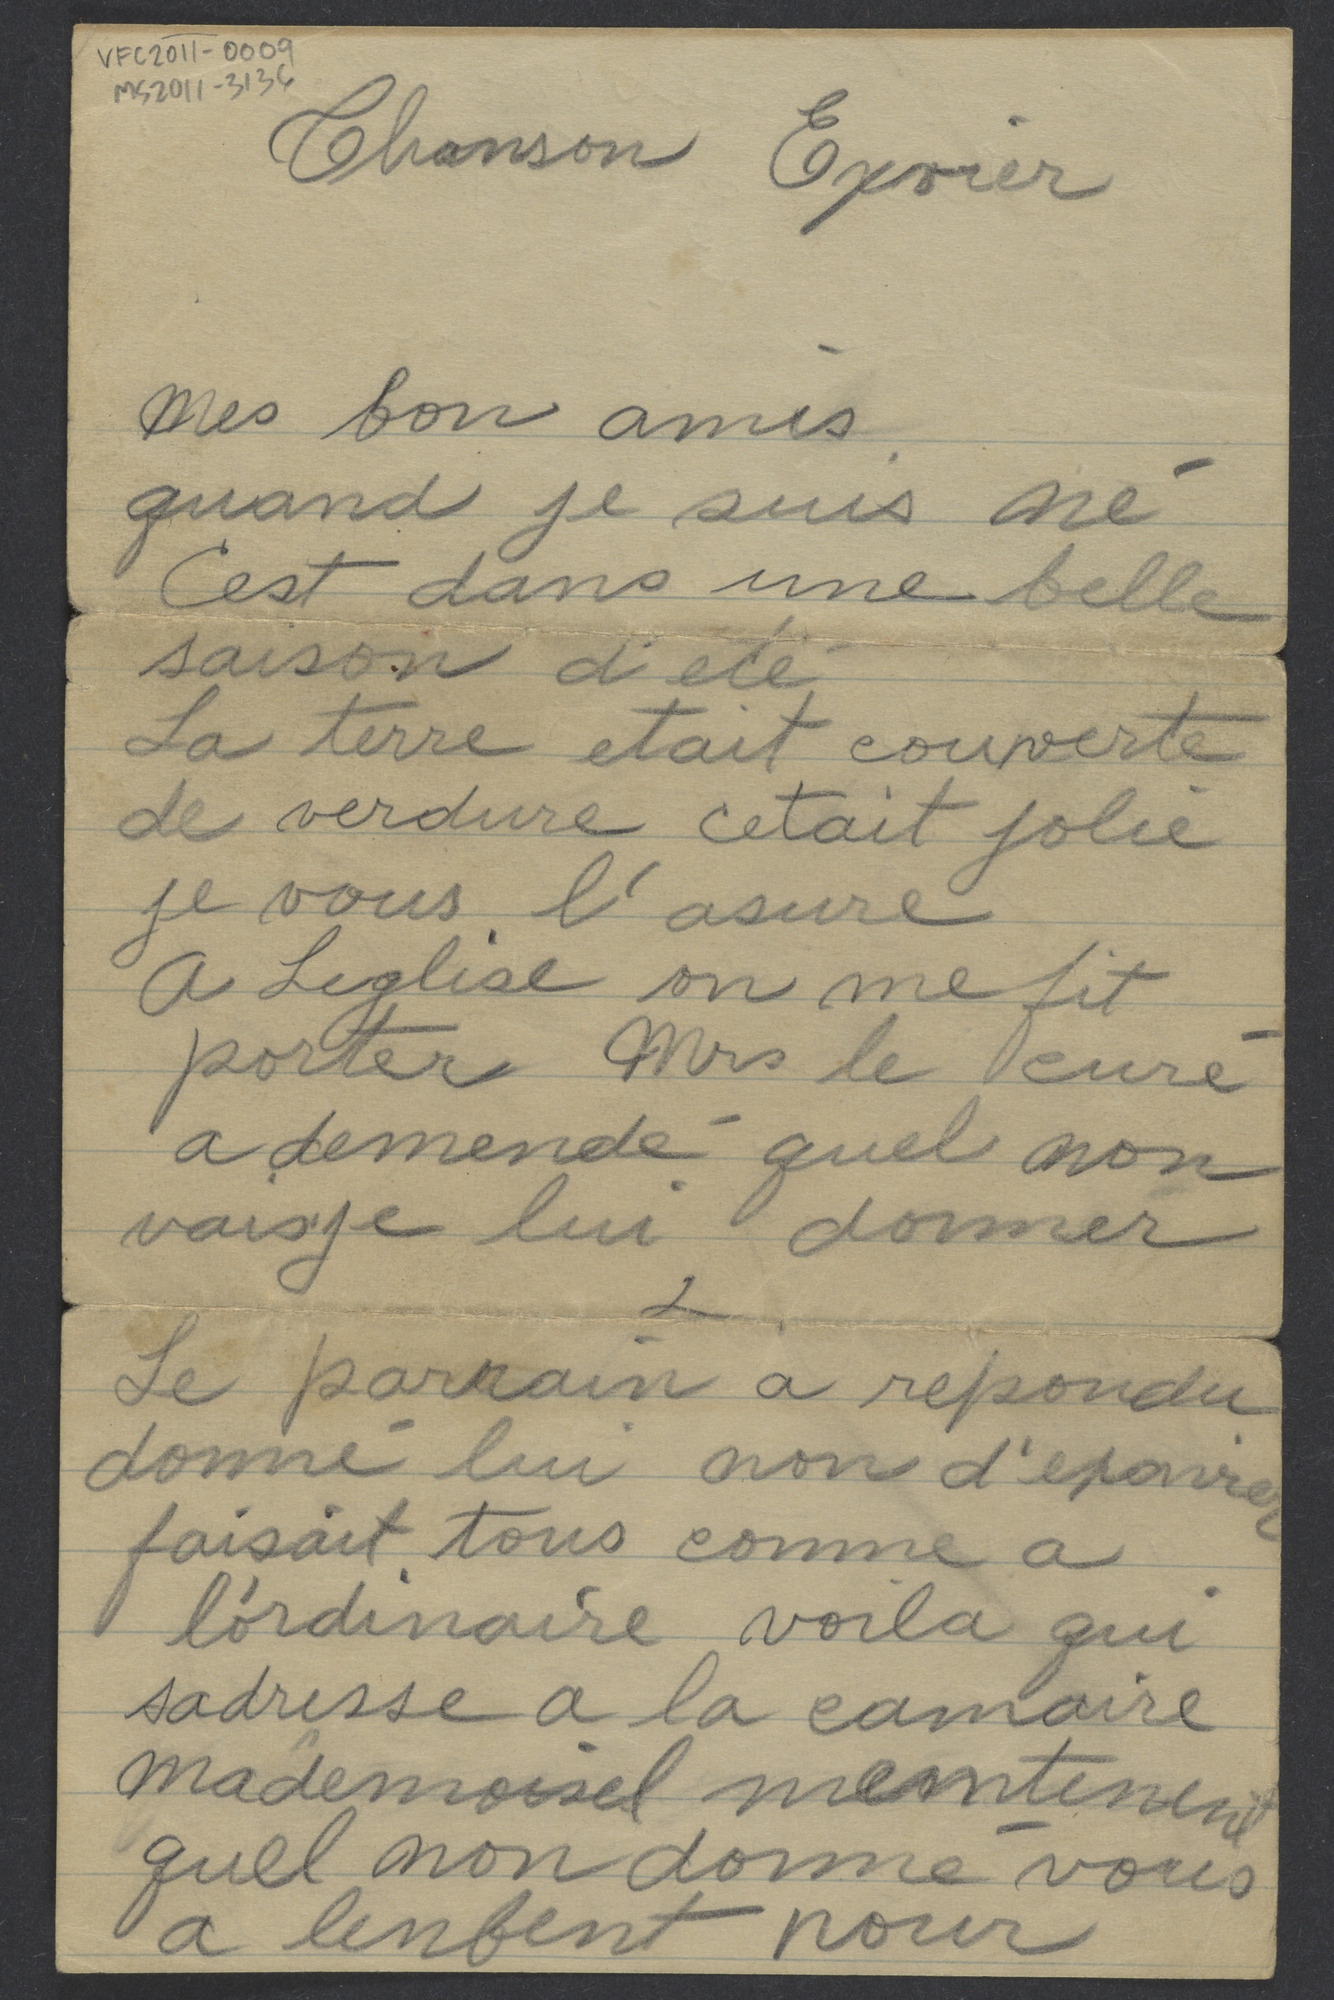 VFC2011-0009
MS2011-3136
Chanson Exvier
Mes bon amis
quand je suis né
C'est dans une belle
saison d'eté
La terre etait couverte
de verdure cetait jolie
je vous l'asure
A Leglise on me fit
porter Mrs le curé
a demendé quel non
vaisje lui donner
2
Le parrain a repondu
donné lui non d'exavier
faisait tous comme a
l'ordinaire voila qui
sadresse a la camaire
Mademoisel
quel non donné vous
a lenfent pour